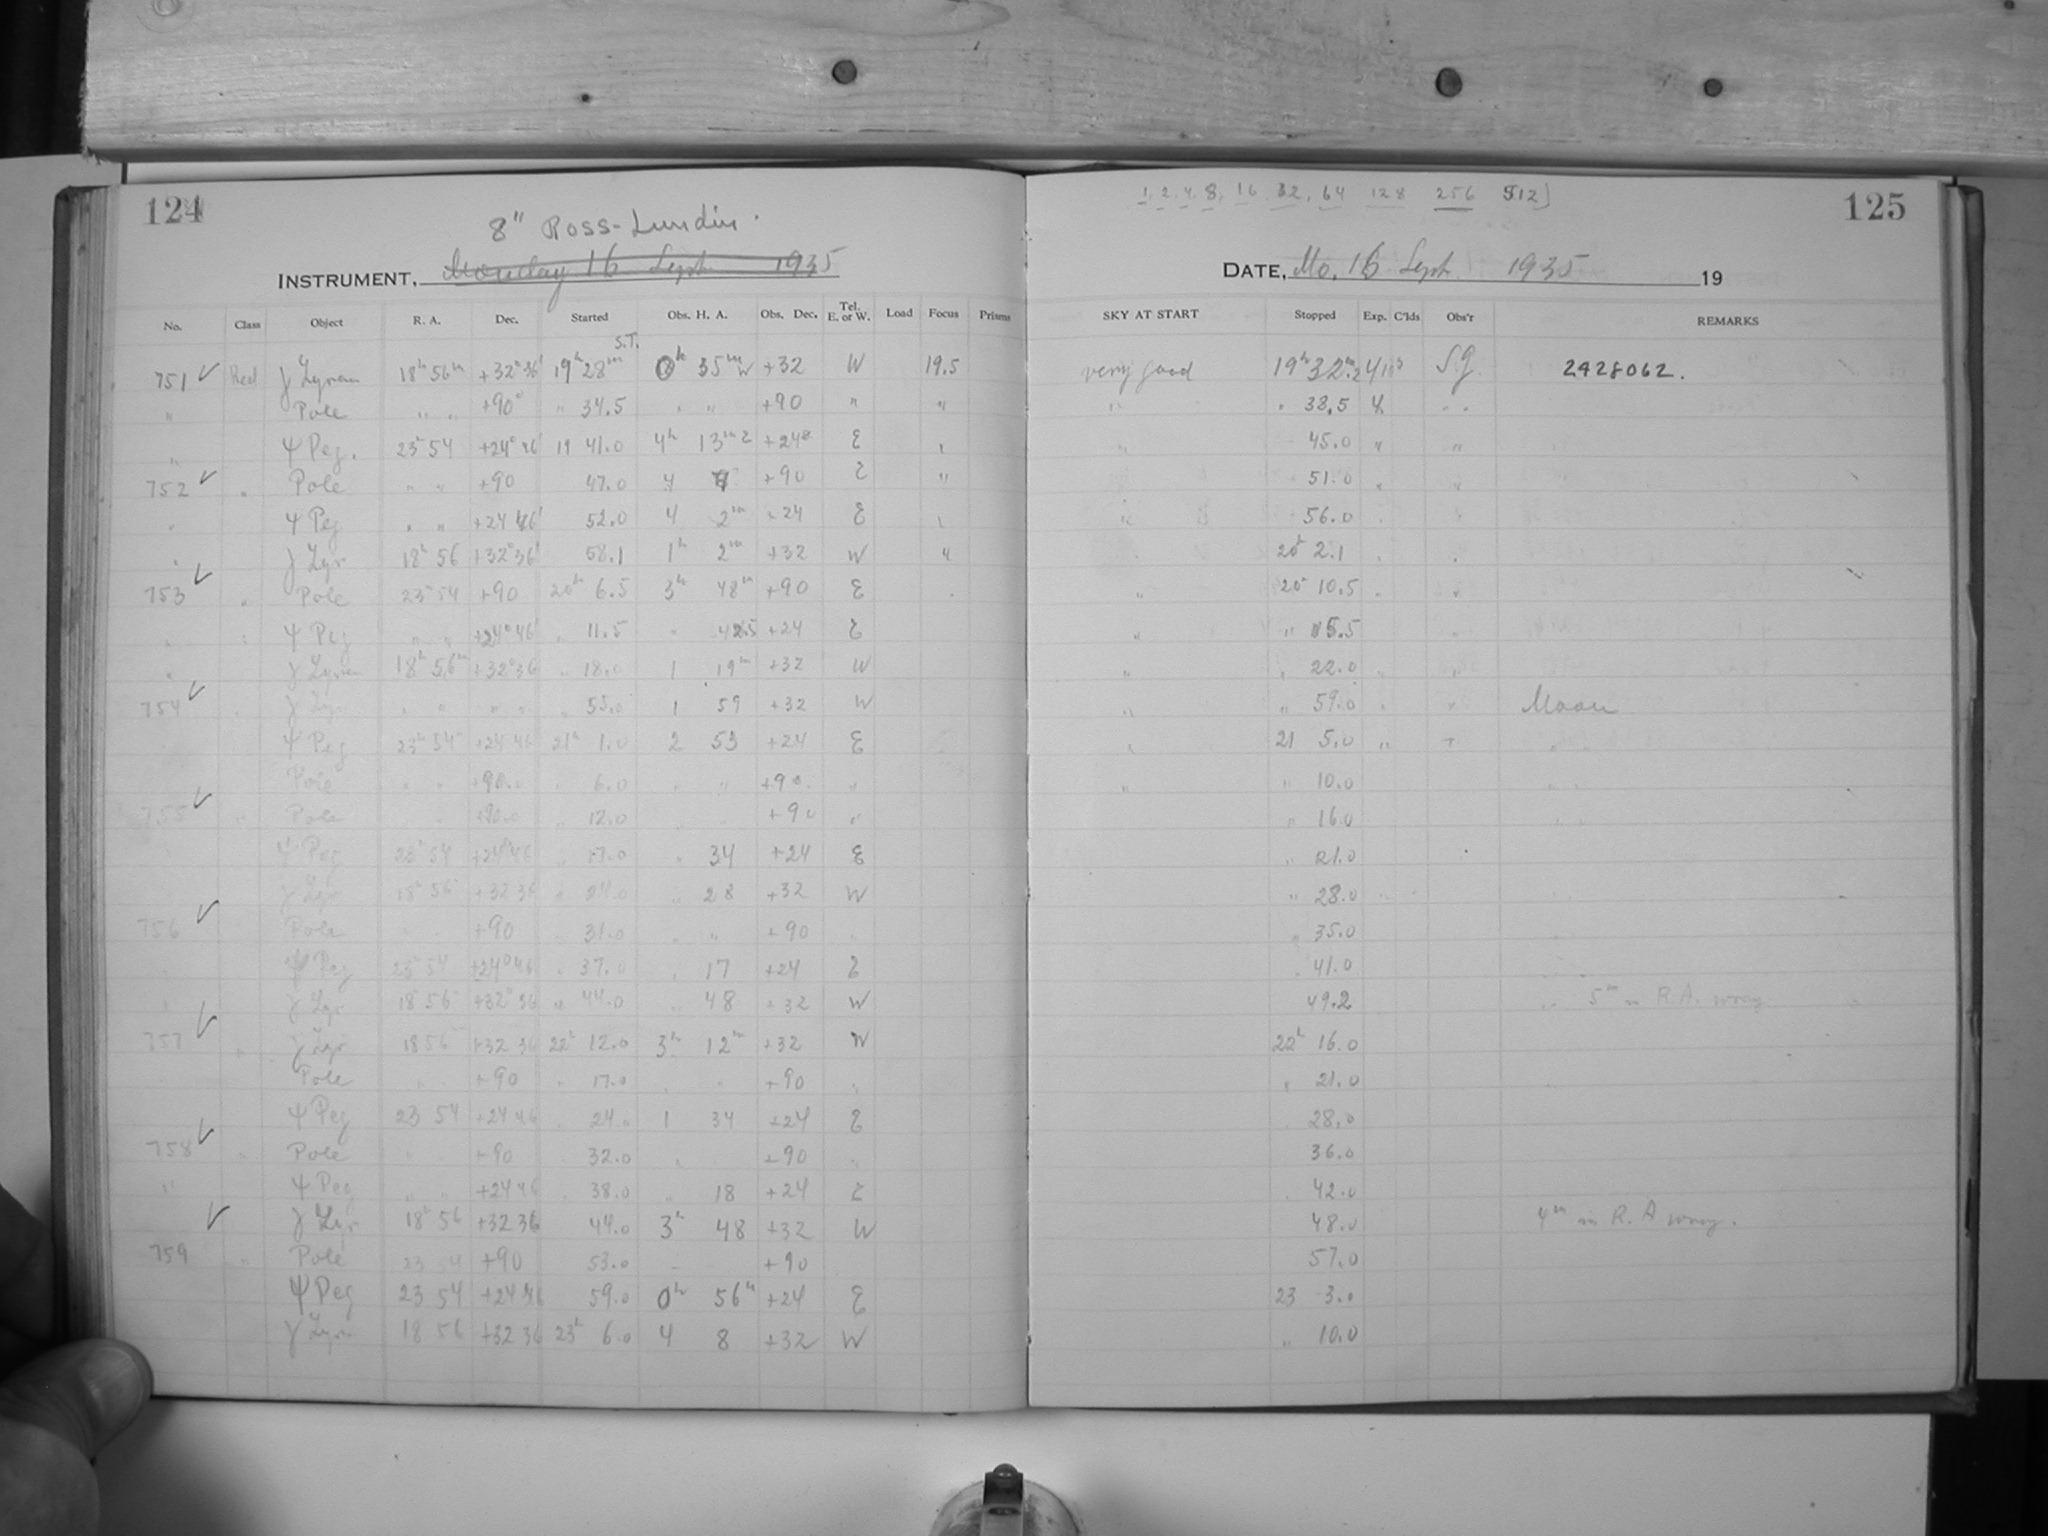 124
8" Ross-Lundin.
INSTRUMENT, Monday 16 Sept. 1935
No. Class Object R. A. Dec. Started Obs. H. A. Obs. Dec. Tel. E. or W. Load Focus Prisms
S.T.
751 ✓ Red γ Lyrae 18h 56m +32° 36' 19h 28m 0h 35m W +32 W 19.5
" Pole " " +90° " 34.5 " " +90 " "
" ψ Peg. 23h 54 +24° 46' 19 41.0 4h 13m E +24 E "
752 ✓ " Pole " " +90 47.0 4 +90 E "
" ψ Peg " " +24 46' 52.0 4 2m +24 E "
" γ Lyr 18h 56 +32° 36' 58.1 1h 2m +32 W "
753 ✓ " Pole 23h 54 +90 20h 6.5 3h 48m +90 E
" " ψ Peg " " +24° 46' " 11.5 " 42.5 +24 E
" γ Lyrae 18h 56m +32° 36 " 18.0 1 19m +32 W
754 ✓ γ Lyr " " " " " 55.0 1 59 +32 W
ψ Peg 23h 54 +24 46 21h 1.0 2 53 +24 E
Pole " " +90.0 " 6.0 " " +90 "
755 ✓ " Pole +90.0 " 12.0 +90 "
ψ Peg 23h 54 +24° 46 17.0 " 34 +24 E
γ Lyr 18h 56 +32 36 " 24.0 " 28 +32 W
756 ✓ Pole +90 31.0 " " +90
ψ Peg 23h 54 +24° 46 37.0 " 17 +24 E
γ Lyr 18 56 +32° 36 " 44.0 " 48 +32 W
757 ✓ " γ Lyr 18 56 +32 36 22h 12.0 3h 12m +32 W
Pole +90 17.0 +90 "
ψ Peg 23 54 +24 46 24.0 1 34 +24 E
758 ✓ " Pole +90 32.0 +90
" ψ Peg " " +24 46 38.0 " 18 +24 E
✓ γ Lyr 18h 56 +32 36 44.0 3h 48 +32 W
759 " Pole 23 54 +90 53.0 +90
ψ Peg 23 54 +24 46 59.0 0h 56m +24 E
γ Lyr 18 56 +32 36 23h 6.0 4 8 +32 W
1, 2, 4, 8, 16, 32, 64 128 256 512]
125
DATE, Mo. 16 Sept. 1935 19
SKY AT START Stopped Exp. C'lds Obs'r REMARKS
very good 19h 32m.2 4m S.G. 2428062.
" " 38.5 4 " "
" 45.0 " "
" 51.0 " "
" 56.0
20h 2.1
" 20 10.5 " "
" " 15.5
" " 22.0 " "
" " 59.0 Moon
" 21 5.0 " "
" " 10.0 " "
" 16.0
" 21.0
" 28.0
" 35.0
41.0
49.2 " 5m in R.A. wrong
22h 16.0
" 21.0
28.0
36.0
42.0
48.0 4m in R.A wrong.
57.0
23 3.0
" 10.0